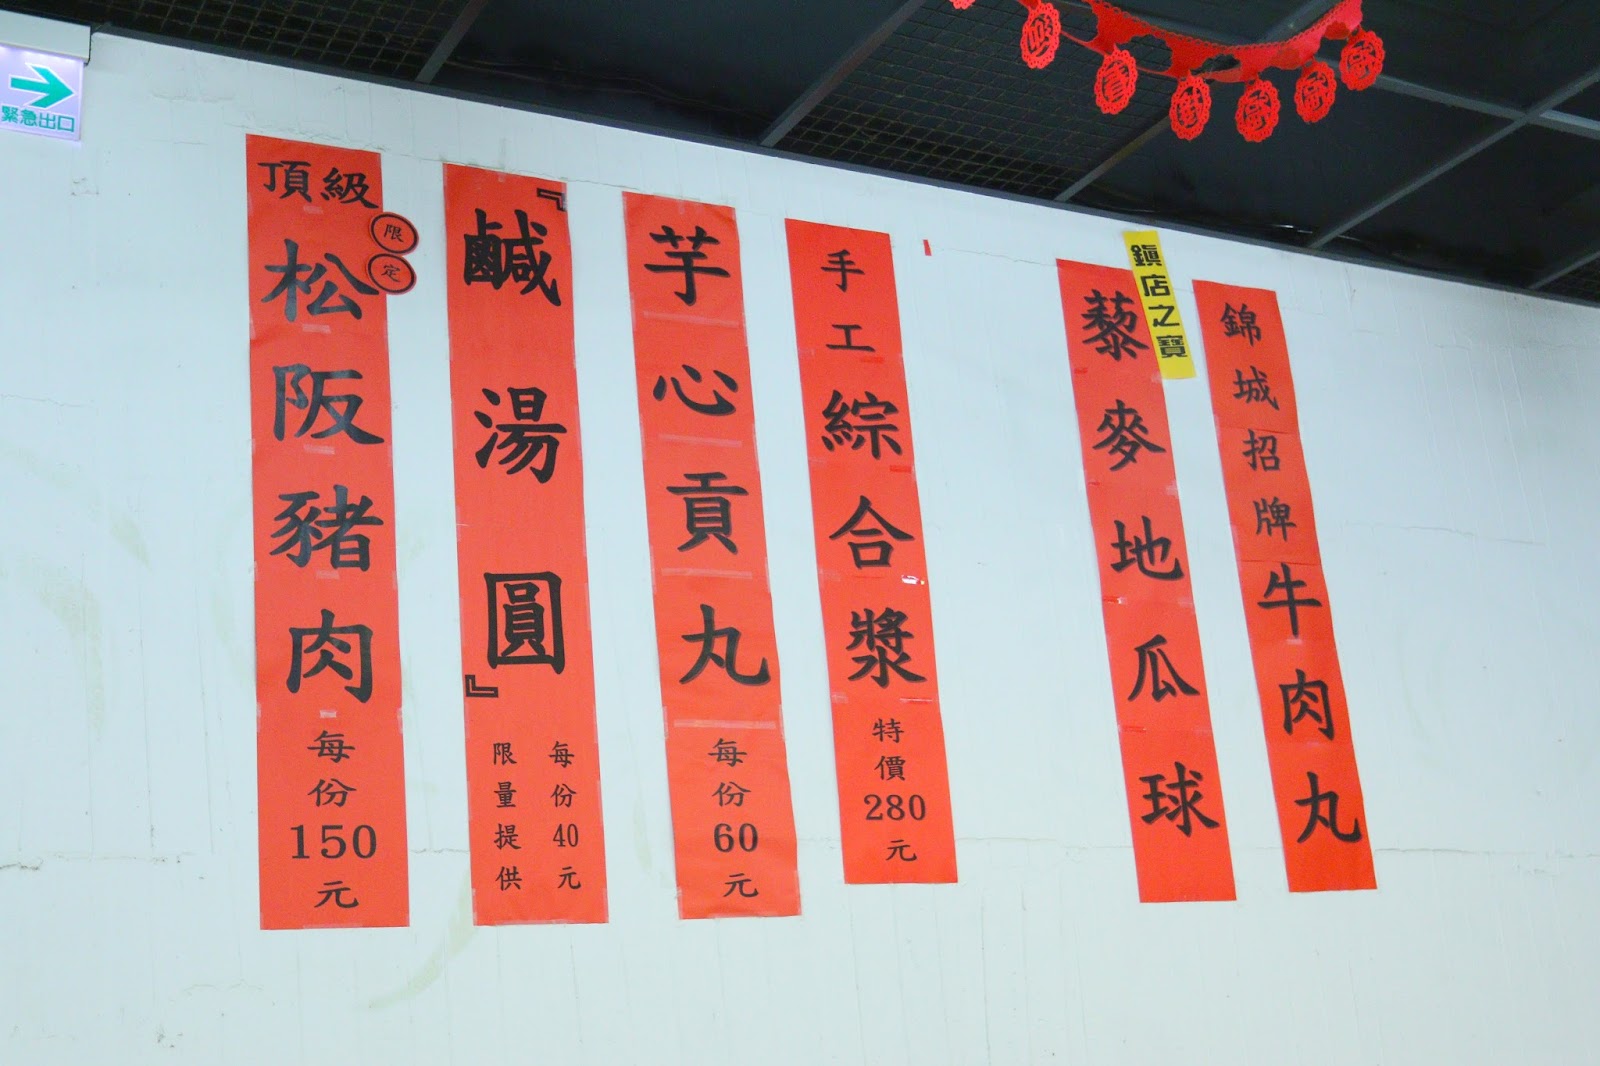 緊急出口
頂級
限定
松阪豬肉
每份150元
『鹹湯圓』
每份40元
限量提供
芋心貢丸
每份60元
手工綜合漿
特價280元
鎮店之寶
藜麥地瓜球
錦城招牌牛肉丸